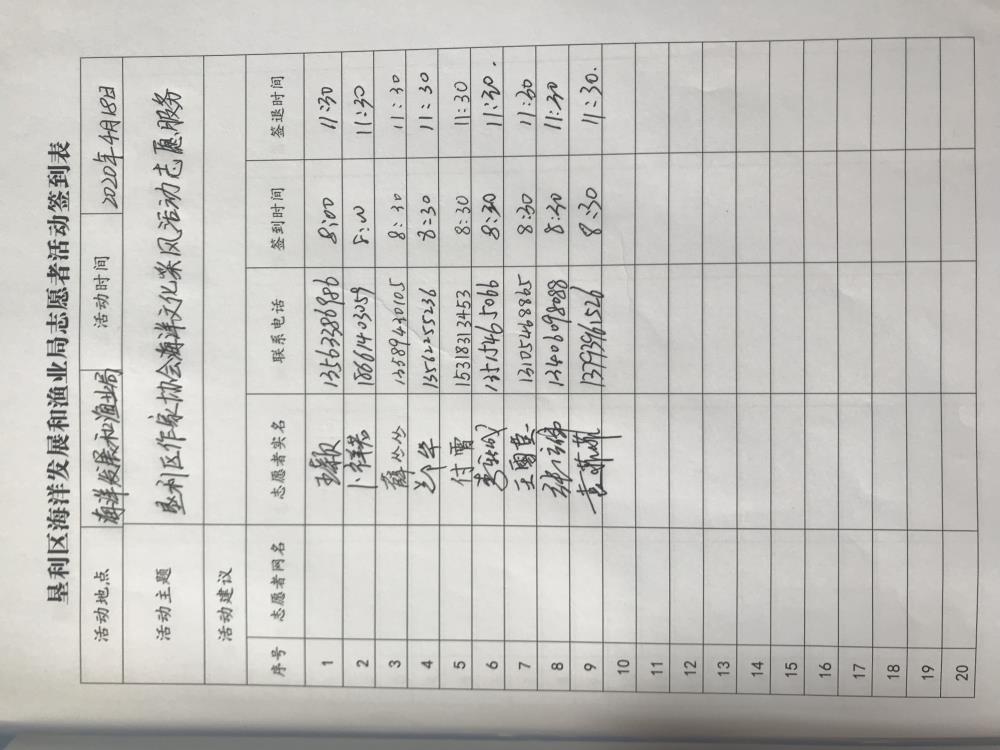 垦利区海洋发展和渔业局志愿者活动签到表
活动地点 海洋发展和渔业局 活动时间 2020年4月18日
活动主题 垦利区作家协会海洋文化采风活动志愿服务
活动建议
序号 志愿者网名 志愿者实名 联系电话 签到时间 签退时间
1 13563386986 8:00 11:30
2 18661403059 8:00 11:30
3 薛丛丛 13589430105 8:30 11:30
4 13562255236 8:30 11:30
5 付雷 15318313453 8:30 11:30
6 13515465066 8:30 11:30.
7 13105468865 8:30 11:30
8 13406098088 8:30 11:30
9 袁菲菲 13793961526 8:30 11:30.
10
11
12
13
14
15
16
17
18
19
20